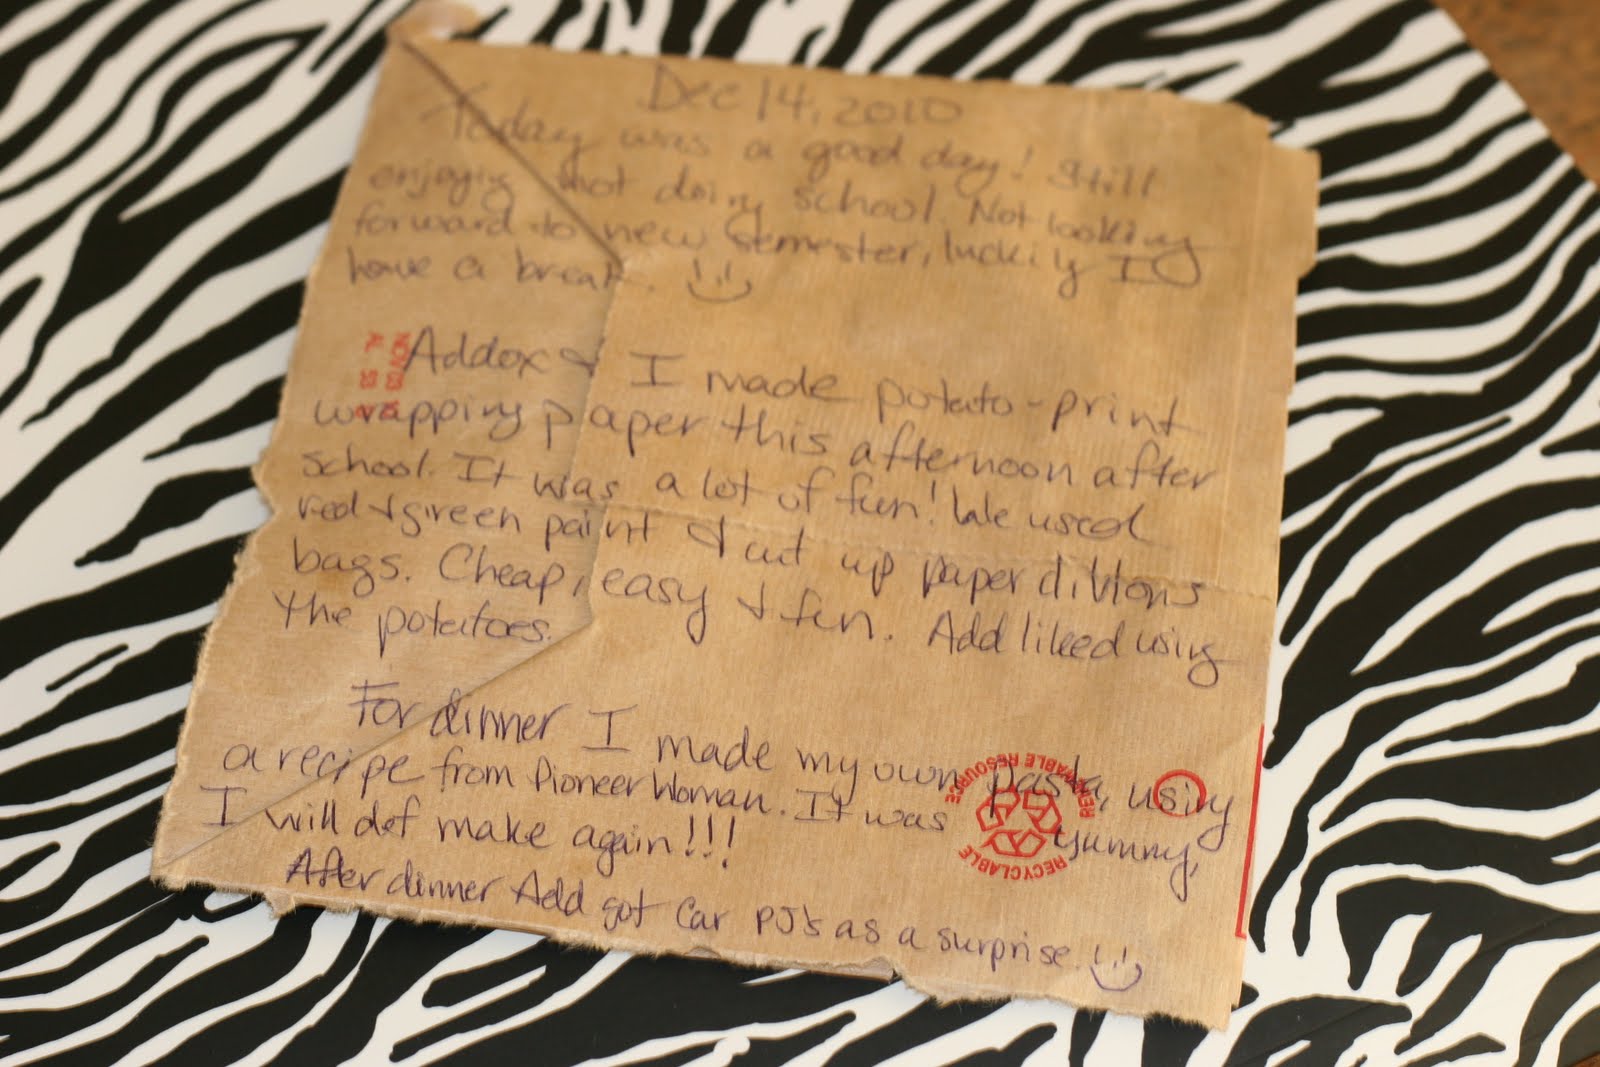 Dec 14, 2010
Today was a good day! Still
enjoying not doing school. Not looking
forward to new semester, luckily I
have a break.
Addox & I made potato-print
wrapping paper this afternoon after
school. It was a lot of fun! We used
red & green paint & cut up paper
bags. Cheap, easy & fun. Add liked using
the potatoes.
For dinner I made my own pasta, using
a recipe from Pioneer Woman. It was yummy,
I will def make again!!!
After dinner Add got car PJ's as a surprise.
NOV 03
RECYCLABLE
RENEWABLE RESOURCE